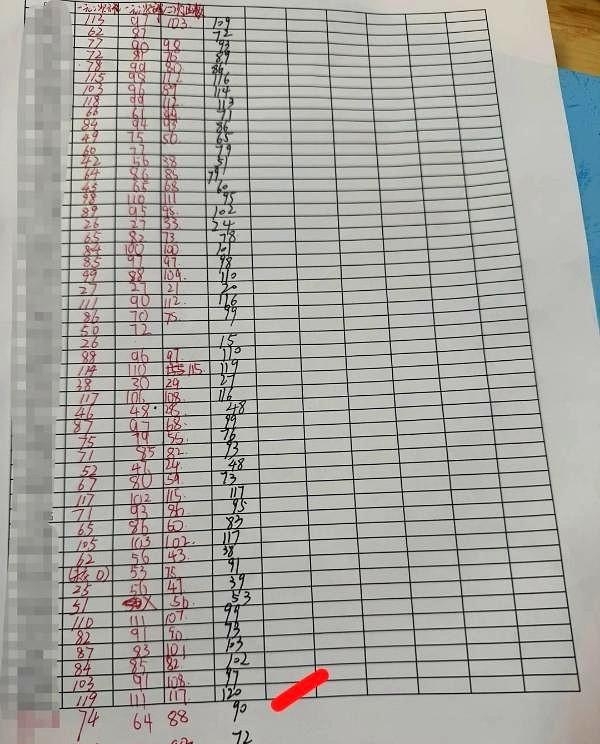 一元二次方程 一元二次方程 二次函数
113 97 103 109
62 87 72
77 90 98 93
72 81 76 89
78 99 80 86
115 98 112 116
103 96 89 114
118 99 112 113
66 61 71
84 94 93 86
49 75 50 65
60 77 79
42 56 38 51
64 86 85 79
45 65 68 60
98 110 111 95
89 95 98 102
26 27 33 24
65 82 73 78
84 100 100 101
85 97 97 98
99 88 109 110
27 27 21 20
111 90 112 116
86 70 75 99
50 72
26 15
88 96 97 110
114 110 115 119
38 30 29 27
117 106 108 116
46 48 28 48
87 97 68 99
75 79 56 76
71 85 82 93
52 41 24 48
67 80 59 73
117 102 115 117
71 93 86 95
65 86 60 83
105 103 102 117
62 56 43 38
53 75 91
25 56 47 39
51 56 53
110 111 107 99
82 91 90 73
87 83 101 103
84 85 82 102
103 91 108 97
119 111 117 120
74 64 88 90
72